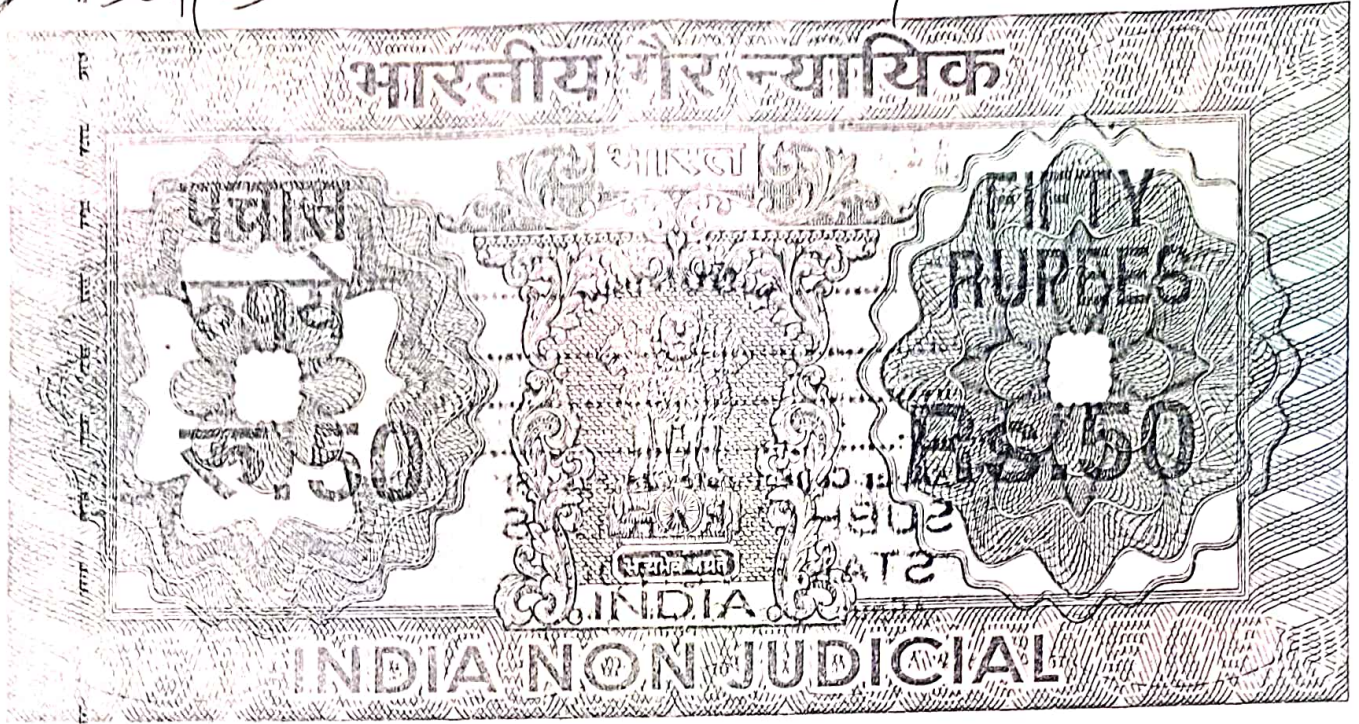 भारतीय गैर न्यायिक
भारत
पचास
रुपये
रु.50
FIFTY
RUPEES
Rs.50
सत्यमेव जयते
INDIA
INDIA NON JUDICIAL